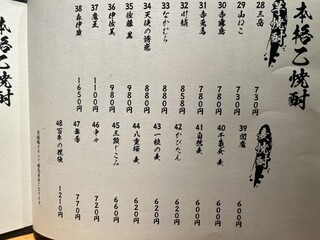 本格乙焼酎
28 三岳 730円
29 山ねこ 730円
30 赤霧島 780円
31 赤兎馬 780円
32 858円
33 なかむら 880円
34 天使の誘惑 980円
35 佐藤 黒 980円
36 伊佐美 980円
37 魔王 1100円
38 森伊蔵 1650円
麦焼酎
39 閻魔 600円
40 600円
41 自然麦 600円
42 かぴたん 620円
43 一粒の麦 620円
44 八重桜 麦 620円
45 三段じこみ 660円
46 中々 720円
47 770円
48 百年の孤独 1210円
本格乙焼酎